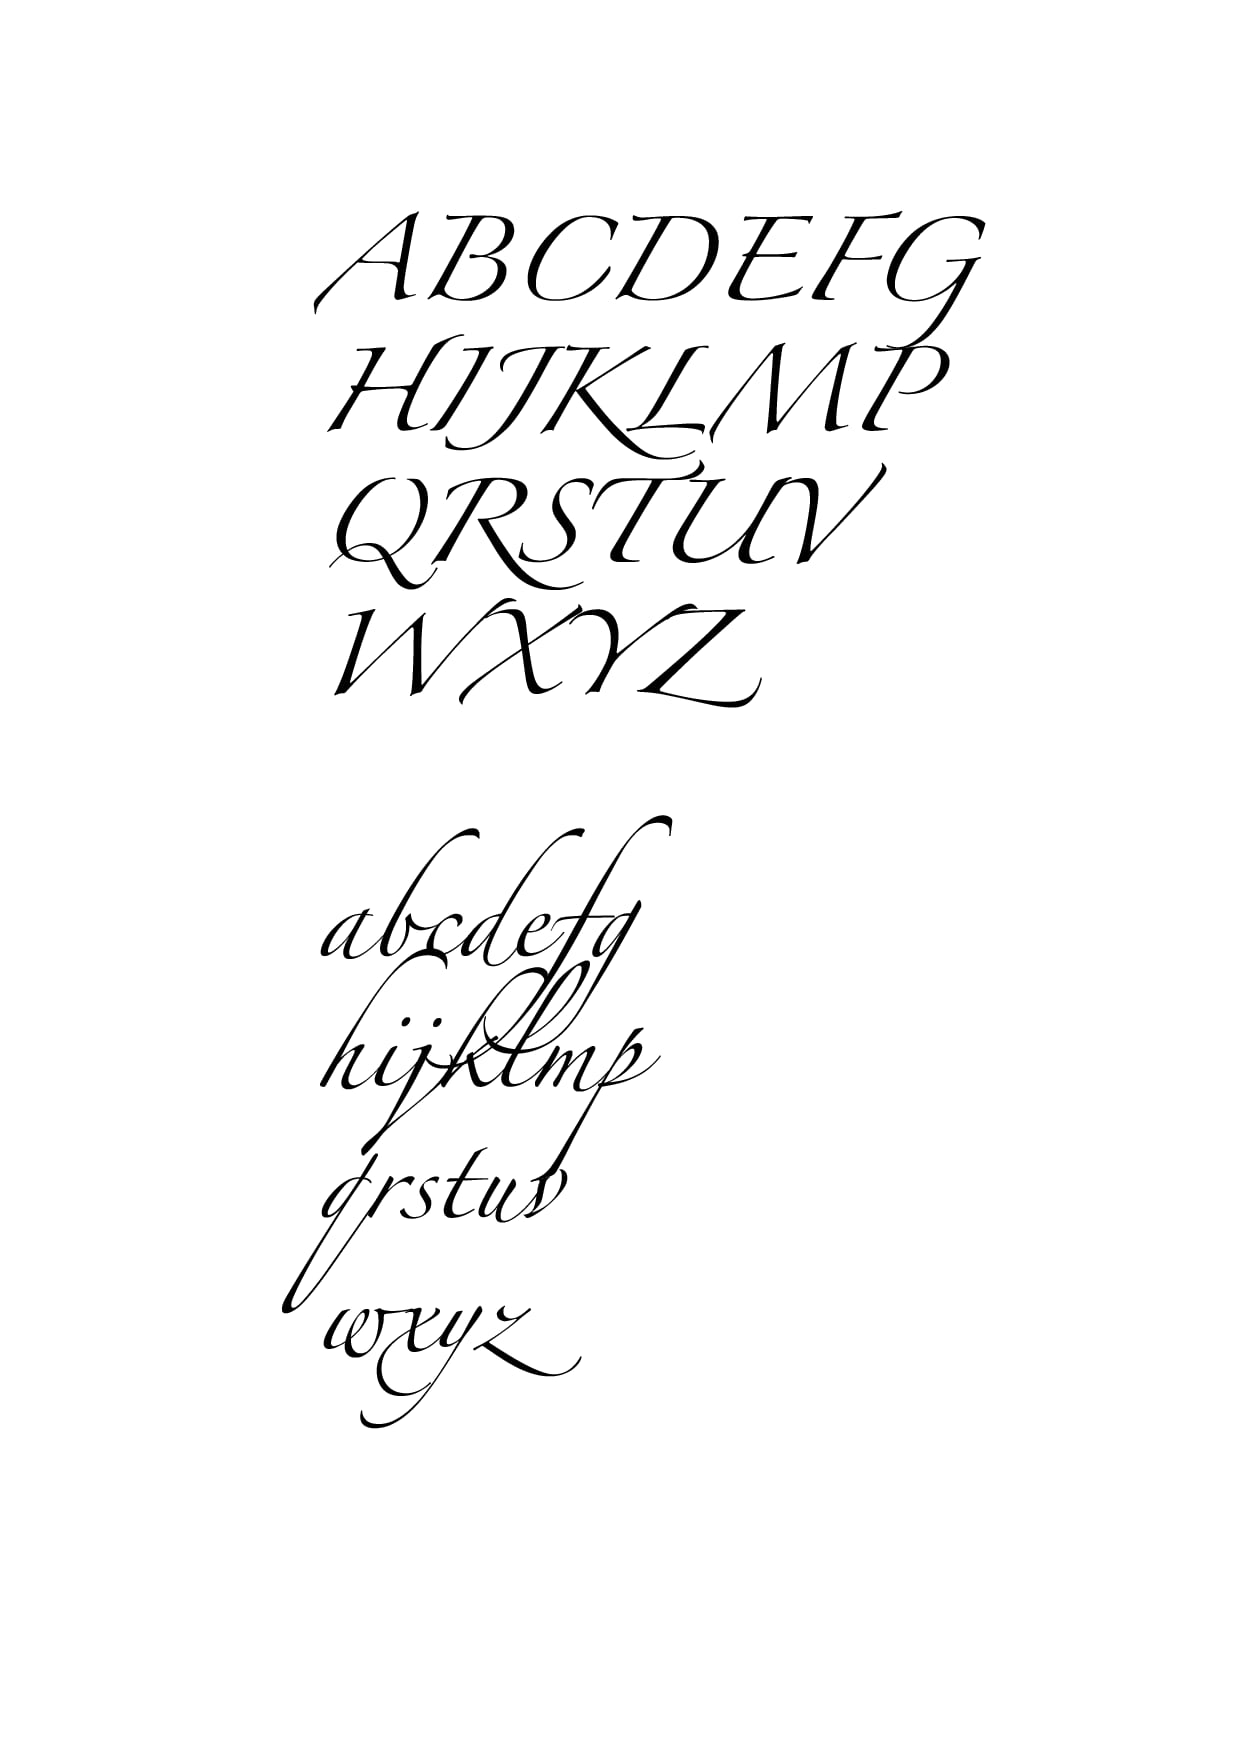 ABCDEFG
HIJKLMP
QRSTUV
WXYZ
abcdefg
hijklmp
qrstuv
wxyz